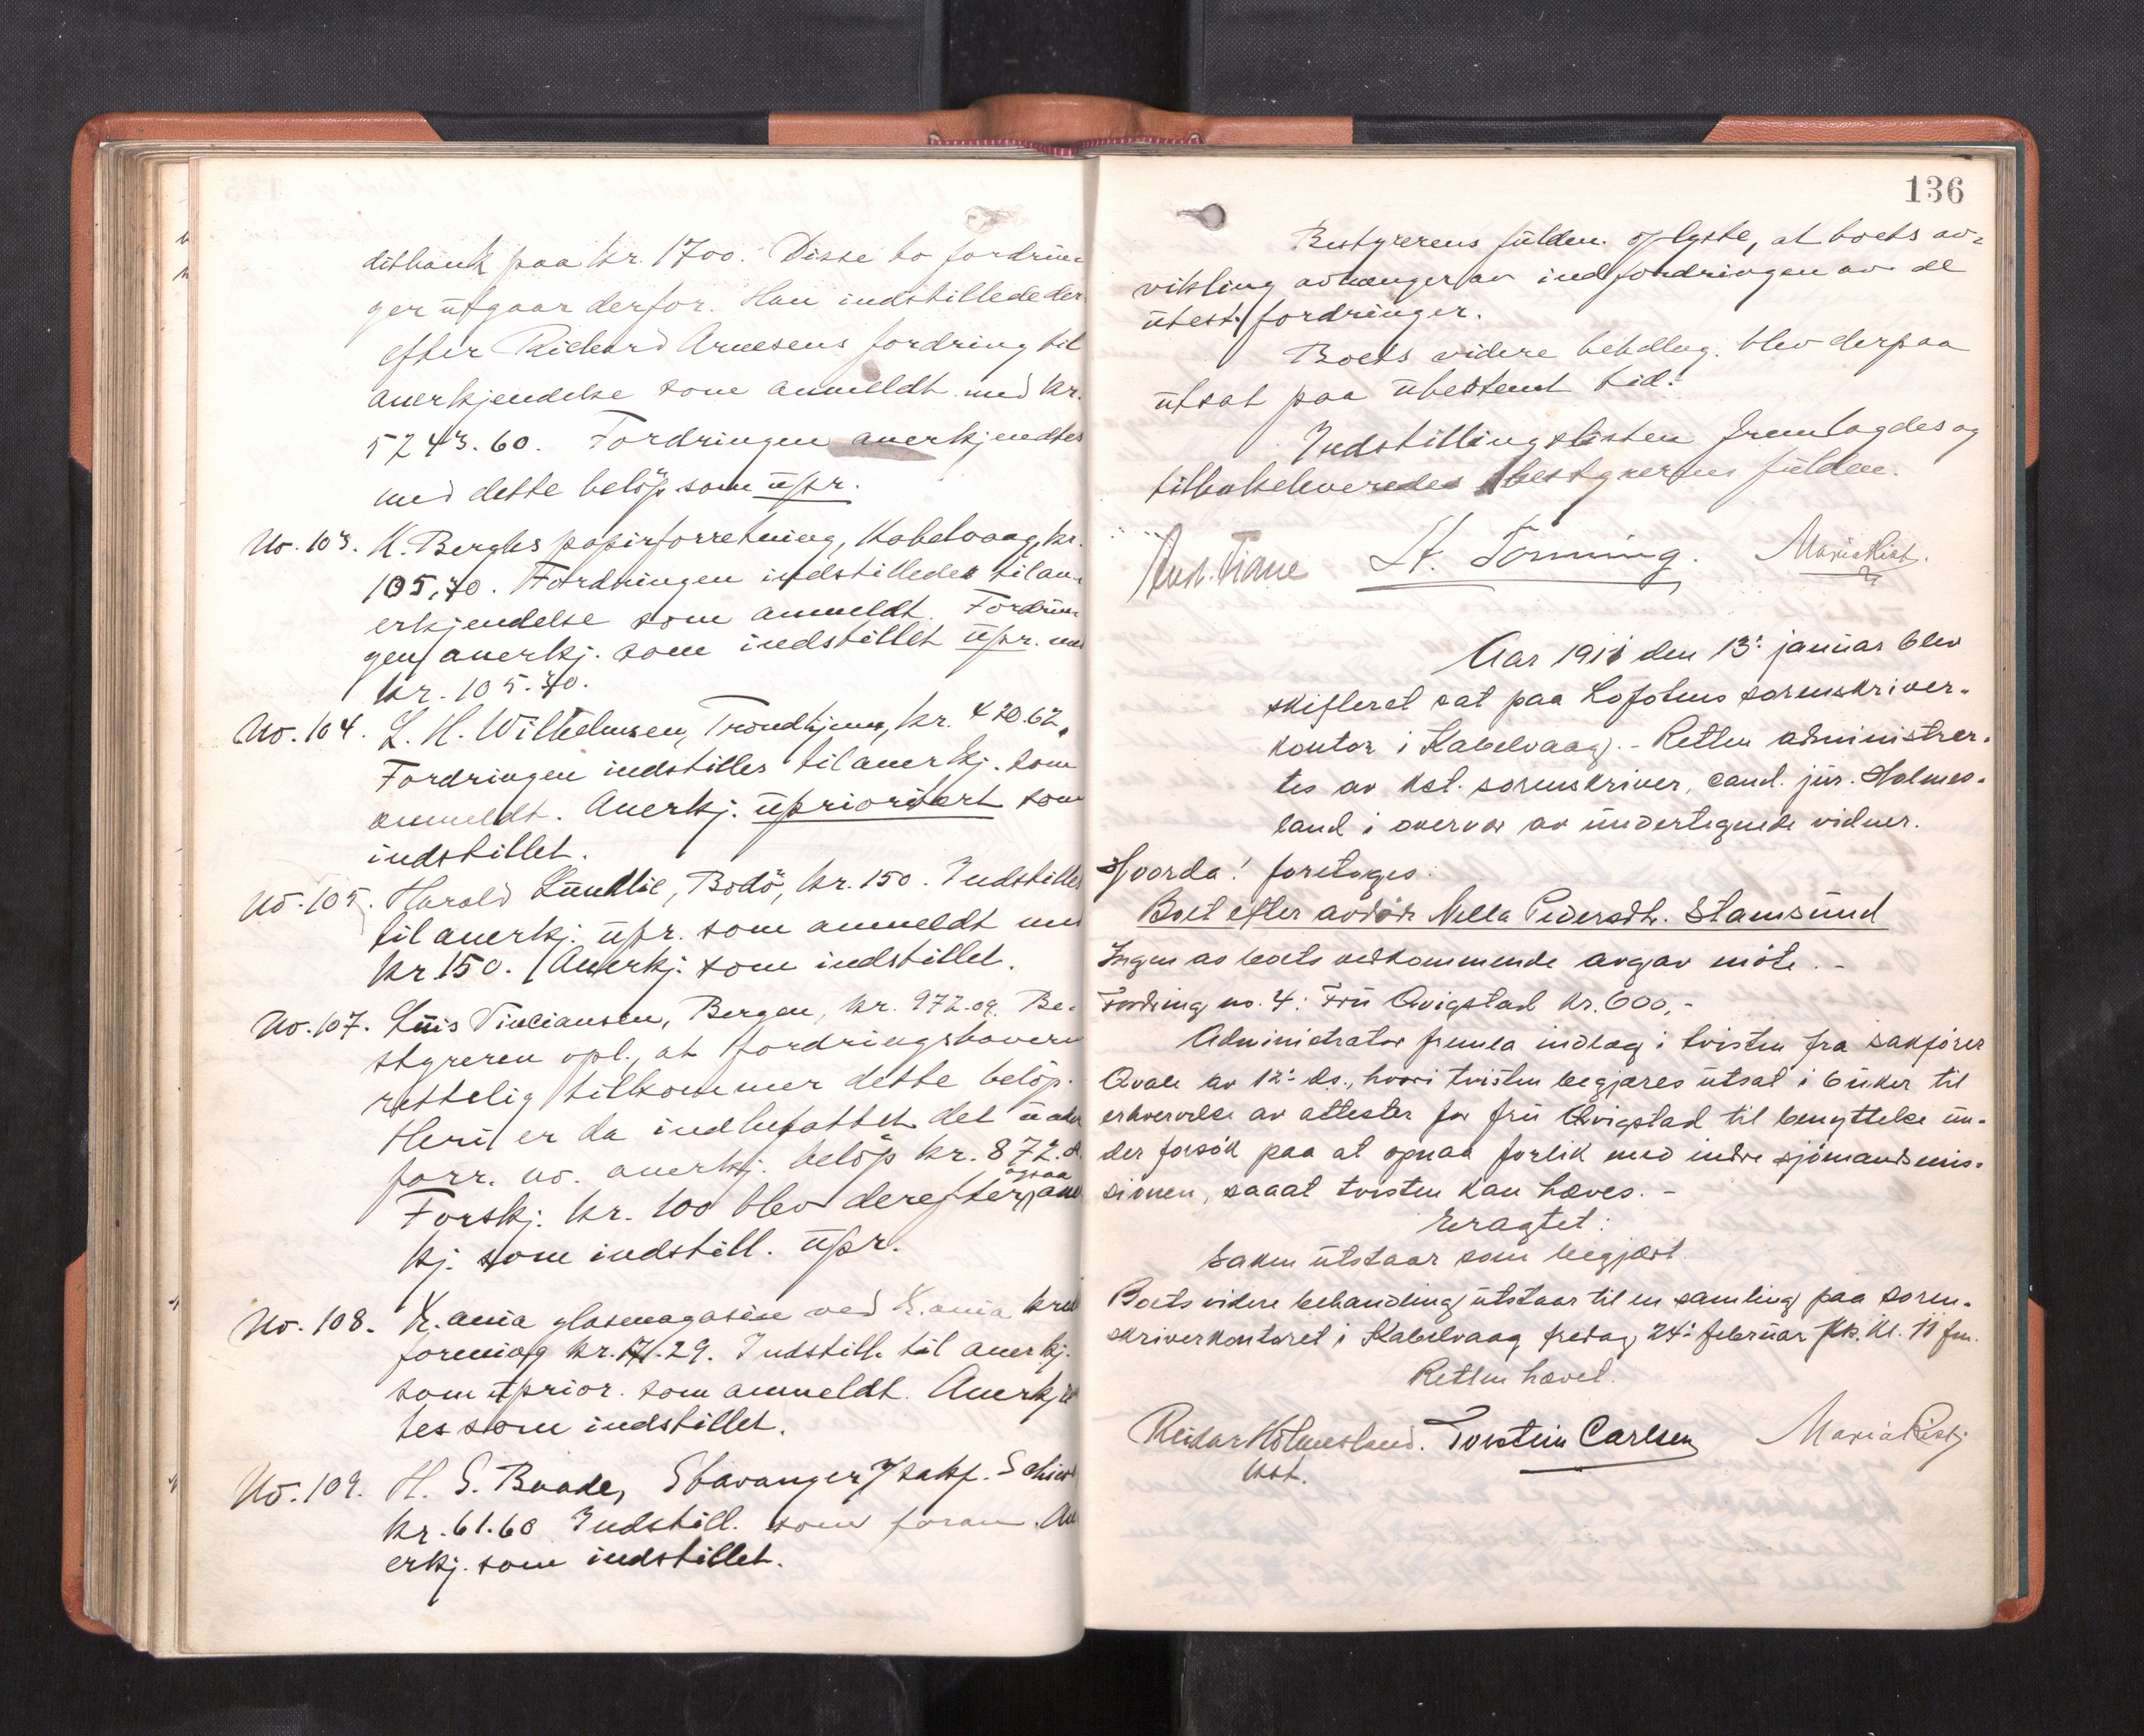 ditbank paa kr. 1700. Disse to fordrin-
ger utgaar derfor. Han indstillede der
efter Richard Arnesens fordring til
anerkjendelse som anmeldt med kr.
5243.60. Fordringen anerkjendtes
med dette beløp som upr.
No. 103. K. Berghs papirforretning, Kabelvaag, kr.
105,70. Fordringen indstilledes til an-
erkjendelse som anmeldt. Fordrin-
gen anerkj. som indstillet upr. med
kr. 105.70.
No. 104. L. H. Wilhelmsen, Trondhjem, kr. 420.62.
Fordringen indstilles til anerkj. som
anmeldt. Anerkj. uprioritert som
indstillet.
No. 105. Harold Lundlie, Bodö, kr. 150. Indstilles
til anerkj. upr. som anmeldt med
kr 150. Anerkj. som indstillet.
No. 107. Kr. 972.09. Be-
styreren opl., at fordringshaveren
rettelig tilkommer dette beløp.
Heri er da indbefattet det under
forr. no. anerkj. beløp kr. 872.
Forskj. kr. 100 blev derefter ogsaa aner
kj. som indstill. upr.
No. 108. K.ania glasmagasin ved K.ania kredit
forening kr. 171.29. Indstill. til anerkj.
som uprior. som anmeldt. Anerkjend
tes som indstillet.
No. 109. H. S. Baade, Stavanger sakf.
kr. 61.60 Indstill. som foran. An
erkj. som indstillet.
136
Bestyrerens fuldm. oplyste, at boets av-
vikling avhænger av indfordringen av de
utest. fordringer.
Boets videre behdlng. blev derpaa
utsat paa ubestemt tid.
Indstillingslisten fremlagdes og
tilbakeleveredes bestyrerens fuldm.
St. Tønning. Maria Rist.
Aar 1911 den 13: januar blev
skifteret sat paa Lofotens sorenskriver-
kontor i Kabelvaag. - Retten administrer-
tes av kst. sorenskriver, cand. jur. Holmes-
land i overvær av undertegnede vidner.
Hvorda! foretoges:
Boet efter avdøde Nella Pedersdtr. Stamsund
Ingen av boets vedkommende avgav møte. -
Fordring no. 4: Fru Qvigstad kr. 600,-
Administrator fremla indlæg i tvisten fra sakfører
Qvale av 12: ds., hvori tvisten begjæres utsat i 6 uker til
erhvervelse av attester for fru Qvigstad til benyttelse un-
der forsøk paa at opnaa forlik med indre sjømandsmis-
sionen, saaat tvisten kan hæves. -
Eragtet:
Saken utstaar som begjært.
Boets videre behandling utstaar til en samling paa soren-
skriverkontoret i Kabelvaag fredag 24: februar kl. 11 fm.
Retten hævet.
Reidar Holmesland. Torstein Carlsen Maria Rist
kst.